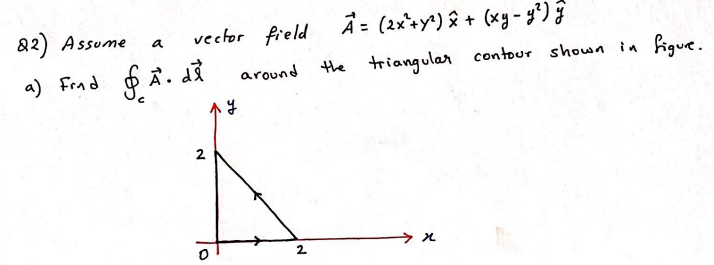 Q2) Assume a vector field A⃗ = (2x²+y²) x̂ + (xy - y²) ŷ
a) Find ∮c A⃗ . dl⃗ around the triangular contour shown in figure.
y
2
0 2 x